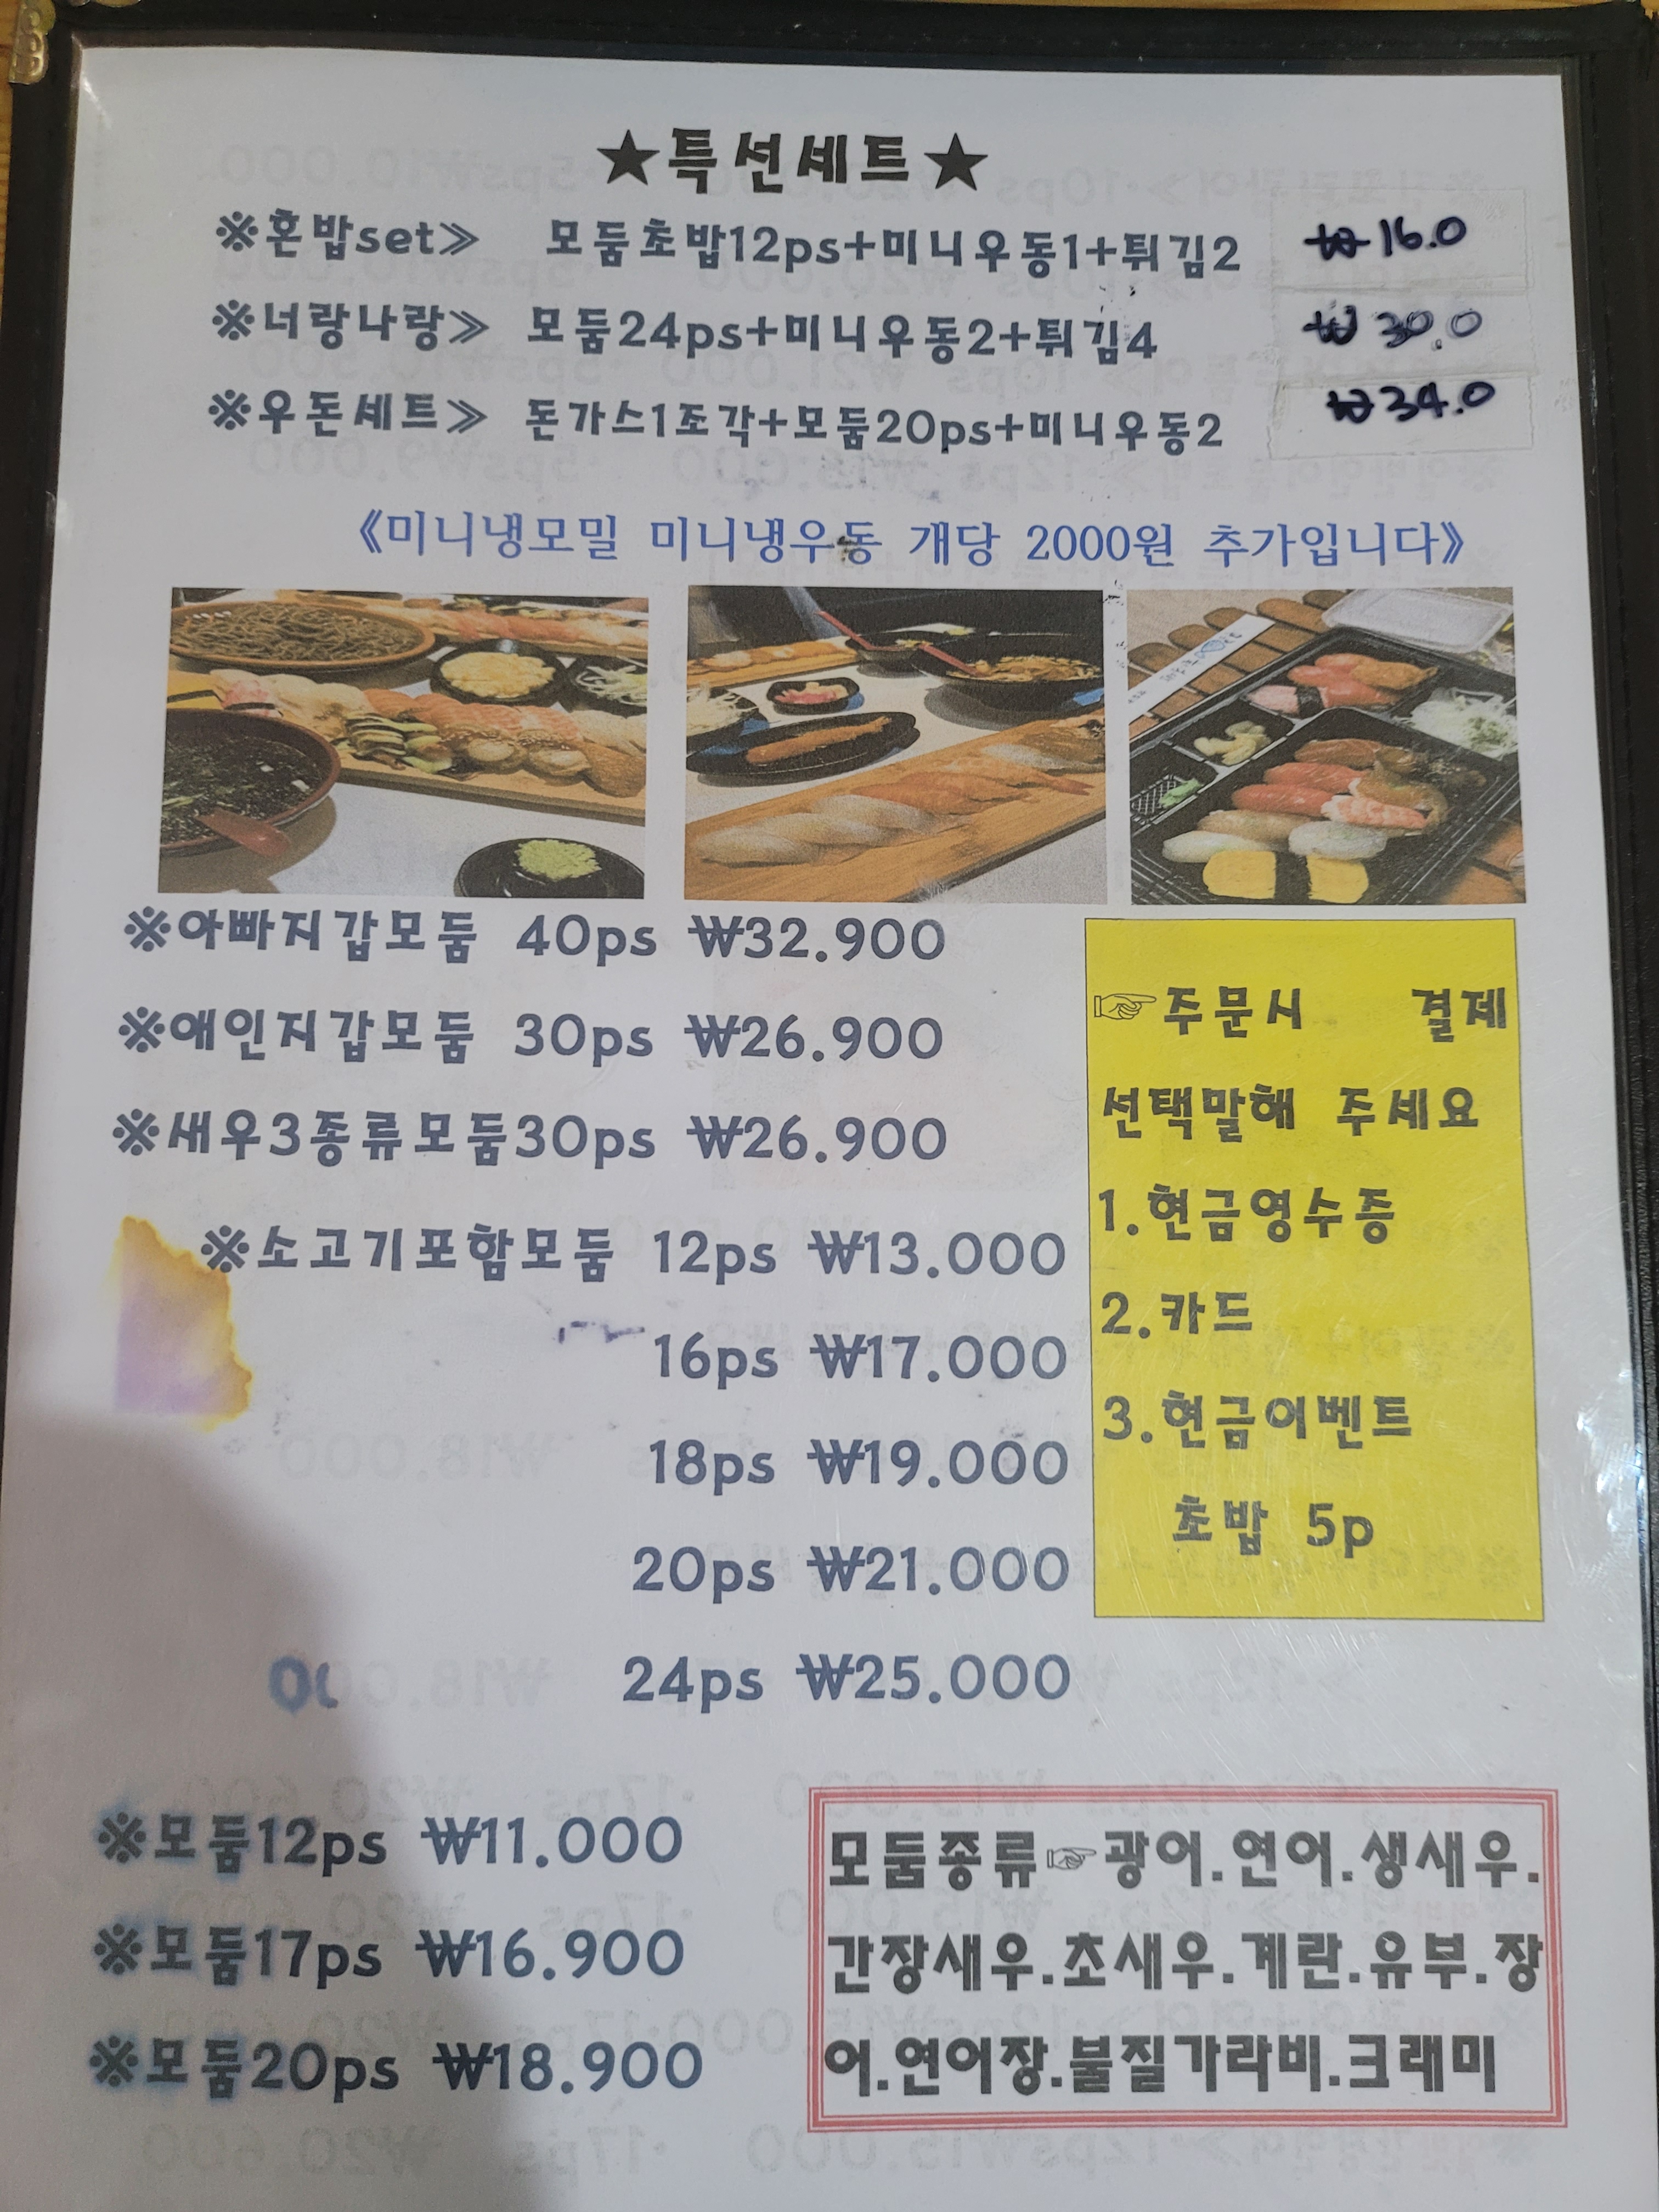 ★특선세트★
※혼밥set≫ 모둠초밥12ps+미니우동1+튀김2 ₩16.0
※너랑나랑≫ 모둠24ps+미니우동2+튀김4 ₩30.0
※우돈세트≫ 돈가스1조각+모둠20ps+미니우동2 ₩34.0
《미니냉모밀 미니냉우동 개당 2000원 추가입니다》
※아빠지갑모둠 40ps ₩32.900
※애인지갑모둠 30ps ₩26.900
※새우3종류모둠30ps ₩26.900
※소고기포함모둠 12ps ₩13.000
16ps ₩17.000
18ps ₩19.000
20ps ₩21.000
24ps ₩25.000
☞주문시 결제
선택말해 주세요
1.현금영수증
2.카드
3.현금이벤트
초밥 5p
※모둠12ps ₩11.000
※모둠17ps ₩16.900
※모둠20ps ₩18.900
모둠종류☞광어.연어.생새우.
간장새우.초새우.계란.유부.장
어.연어장.불질가라비.크래미